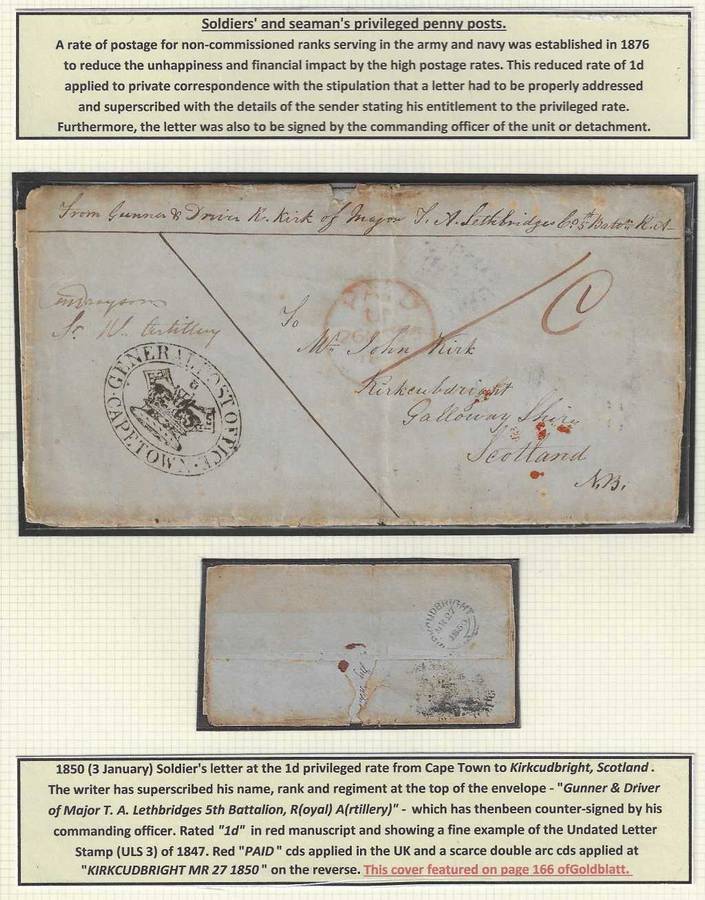 Soldiers' and seaman's privileged penny posts.
A rate of postage for non-commissioned ranks serving in the army and navy was established in 1876
to reduce the unhappiness and financial impact by the high postage rates. This reduced rate of 1d
applied to private correspondence with the stipulation that a letter had to be properly addressed
and superscribed with the details of the sender stating his entitlement to the privileged rate.
Furthermore, the letter was also to be signed by the commanding officer of the unit or detachment.
From Gunner & Driver K. Kirk of Major T. A. Lethbridges Co. 5th Batn. R.A
PAID
To
Mr. John Kirk
Kirkcubdright
Galloway Shire
Scotland
N.B.
GENERAL POST OFFICE
CAPETOWN
KIRKCUDBRIGHT
MR 27
1850
1850 (3 January) Soldier's letter at the 1d privileged rate from Cape Town to Kirkcudbright, Scotland .
The writer has superscribed his name, rank and regiment at the top of the envelope - "Gunner & Driver
of Major T. A. Lethbridges 5th Battalion, R(oyal) A(rtillery)" - which has thenbeen counter-signed by his
commanding officer. Rated "1d" in red manuscript and showing a fine example of the Undated Letter
Stamp (ULS 3) of 1847. Red "PAID" cds applied in the UK and a scarce double arc cds applied at
"KIRKCUDBRIGHT MR 27 1850 " on the reverse. This cover featured on page 166 ofGoldblatt.